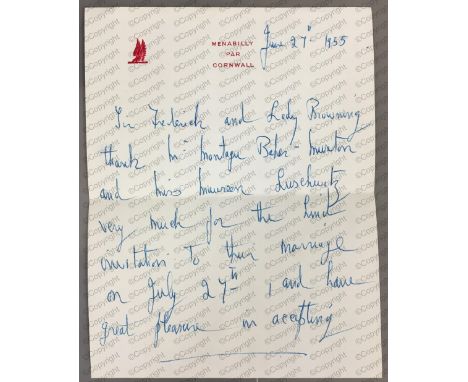 MENABILLY
PAR
CORNWALL
June 27th 1955
Sir Frederick and Lady Browning
thank Mr Montagu Baker-Munton
and Miss Maureen Luschwitz
very much for the kind
invitation to their marriage
on July 27th, and have
great pleasure in accepting